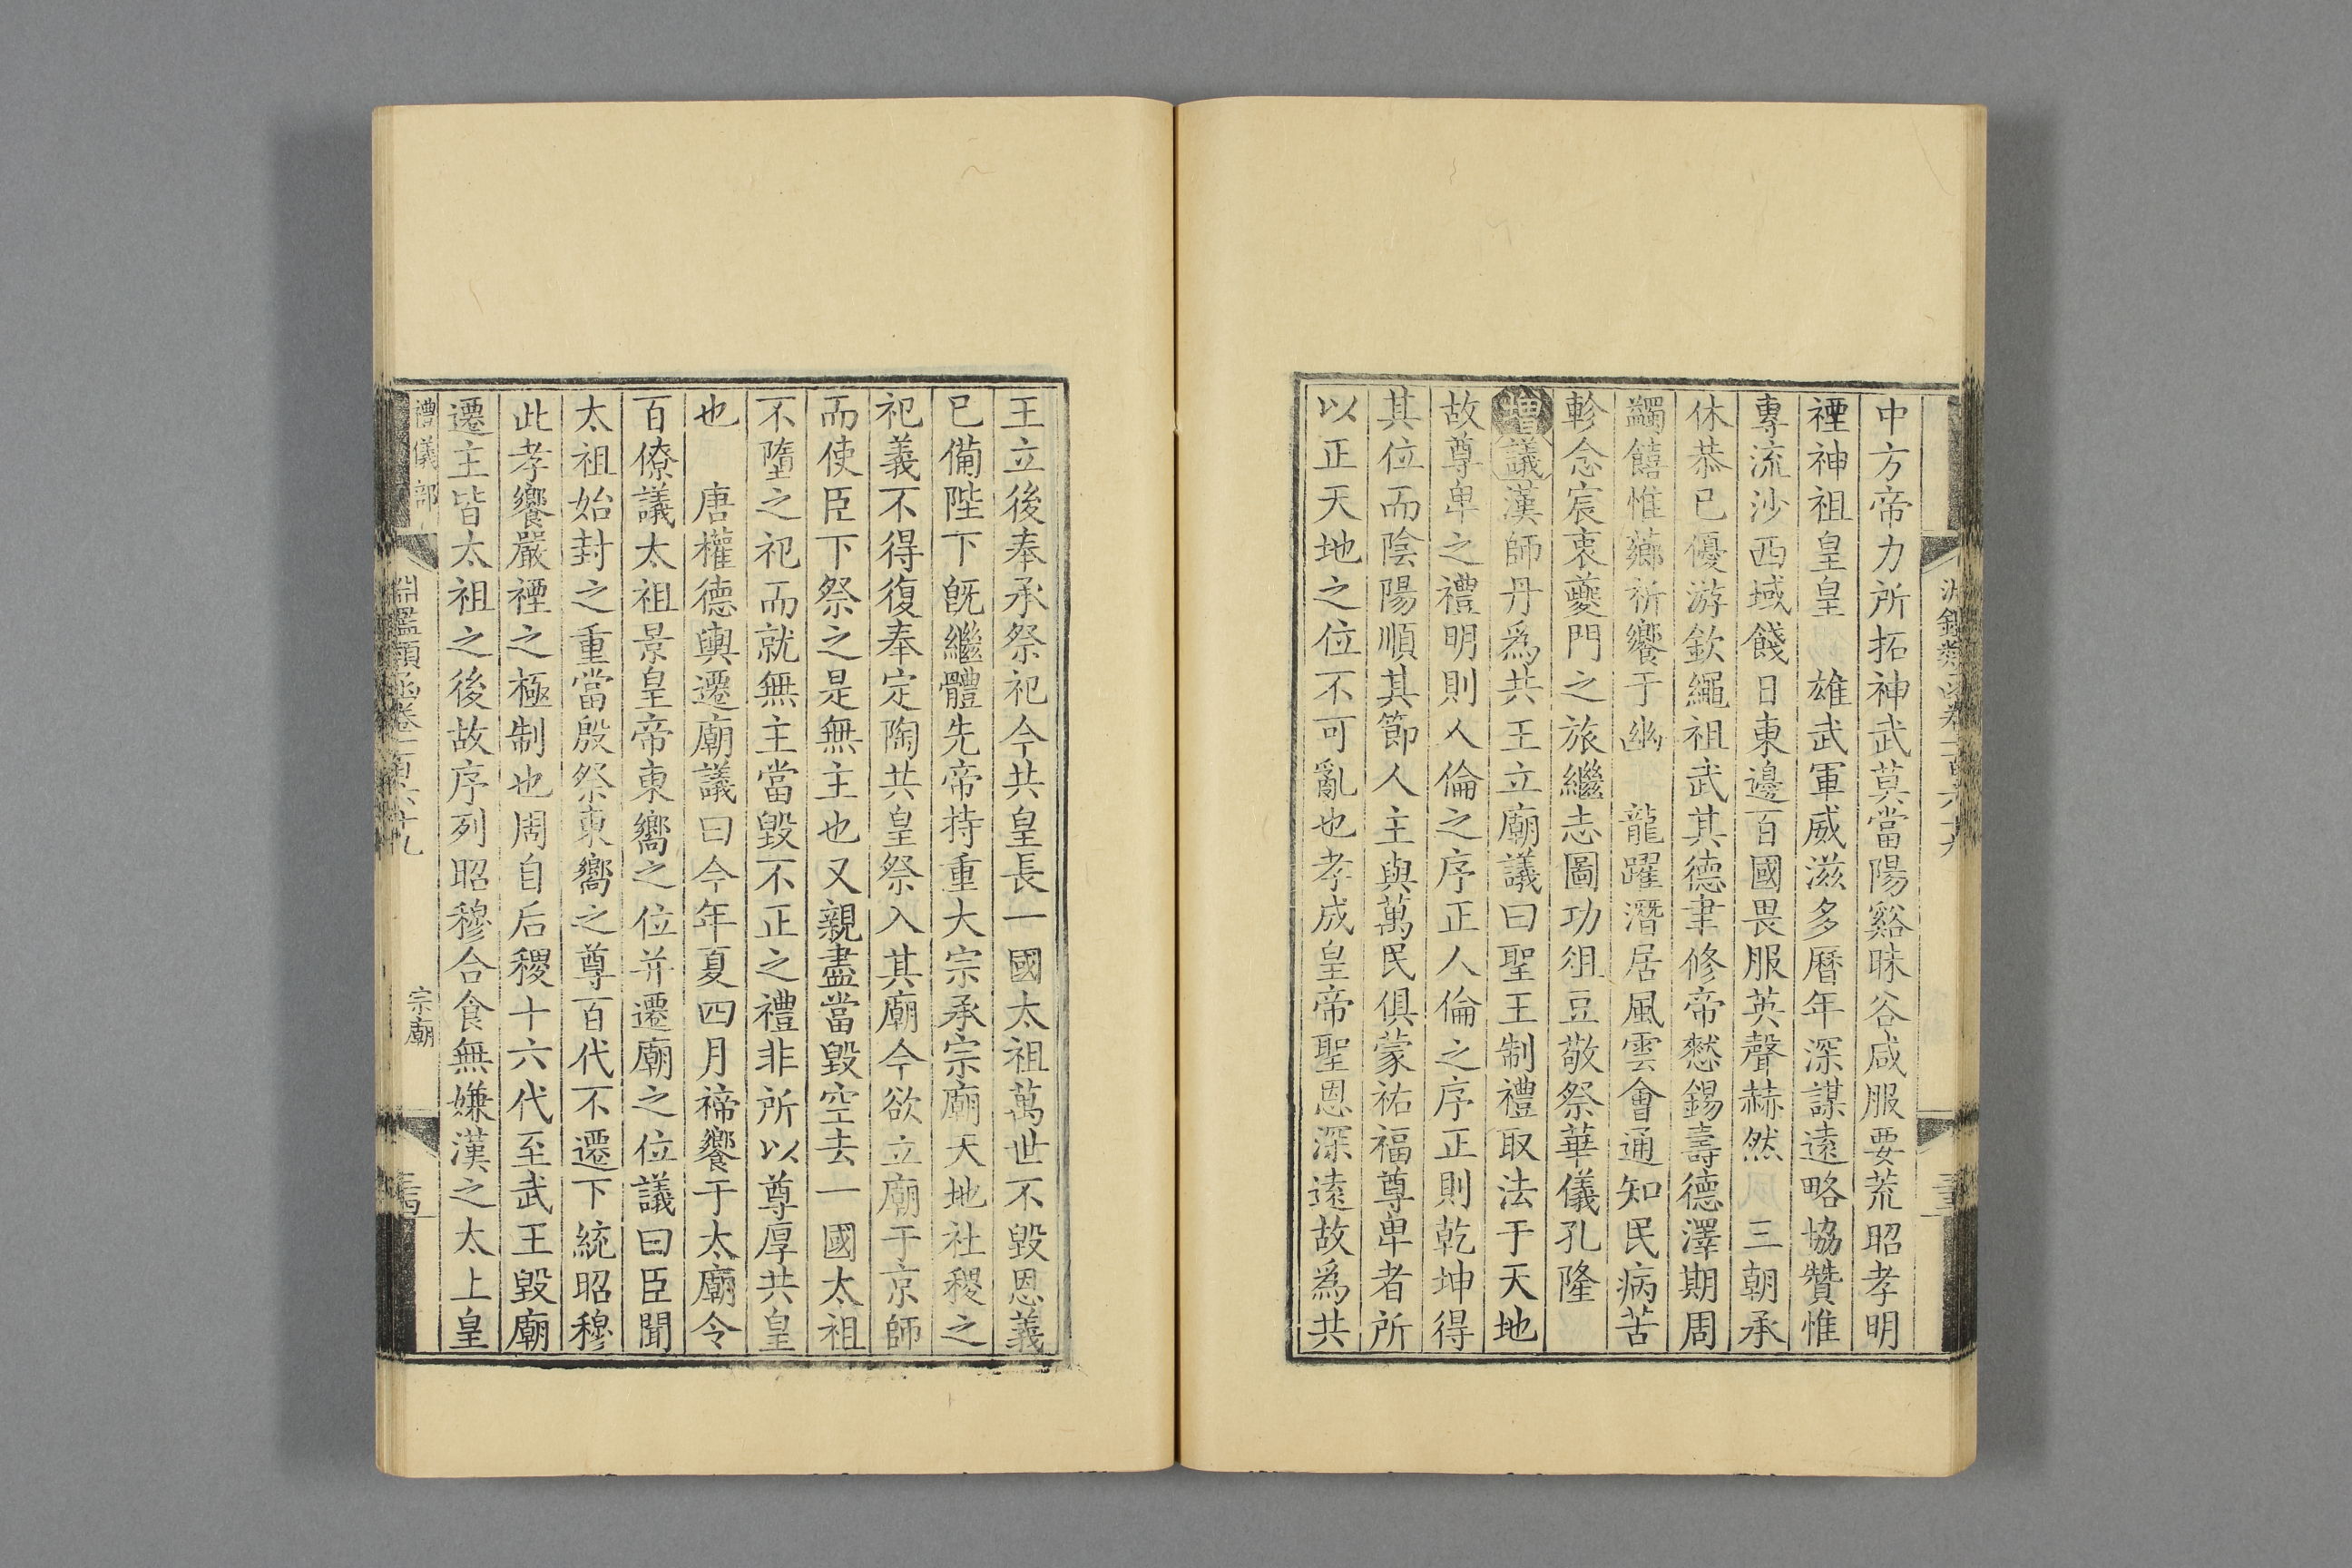 中方帝力所拓神武莫當陽谿昧谷咸服要荒昭孝明
禋神祖皇皇 雄武軍威滋多曆年深謀遠略協贊惟
專流沙西域餞日東邊百國畏服英聲赫然 三朝承
休恭已優游欽繩祖武其德聿修帝慭錫壽德澤期周
蠲饎惟薌祈饗于幽 龍躍潛居風雲會通知民病苦
軫念宸衷夔門之旅繼志圖功俎豆敬祭華儀孔隆
增議漢師丹爲共王立廟議曰聖王制禮取法于天地
故尊卑之禮明則人倫之序正人倫之序正則乾坤得
其位而陰陽順其節人主與萬民俱蒙祐福尊卑者所
以正天地之位不可亂也孝成皇帝聖恩深遠故爲共
王立後奉承祭祀今共皇長一國太祖萬世不毀恩義
已備陛下旣繼體先帝持重大宗承宗廟天地社稷之
祀義不得復奉定陶共皇祭入其廟今欲立廟于京師
而使臣下祭之是無主也又親盡當毀空去一國太祖
不墮之祀而就無主當毀不正之禮非所以尊厚共皇
也 唐權德輿遷廟議曰今年夏四月禘饗于太廟令
百僚議太祖景皇帝東嚮之位并遷廟之位議曰臣聞
太祖始封之重當殷祭東嚮之尊百代不遷下統昭穆
此孝饗嚴禋之極制也周自后稷十六代至武王毀廟
遷主皆太祖之後故序列昭穆合食無嫌漢之太上皇
禮儀部 淵鑑類函卷一百六十九 宗廟